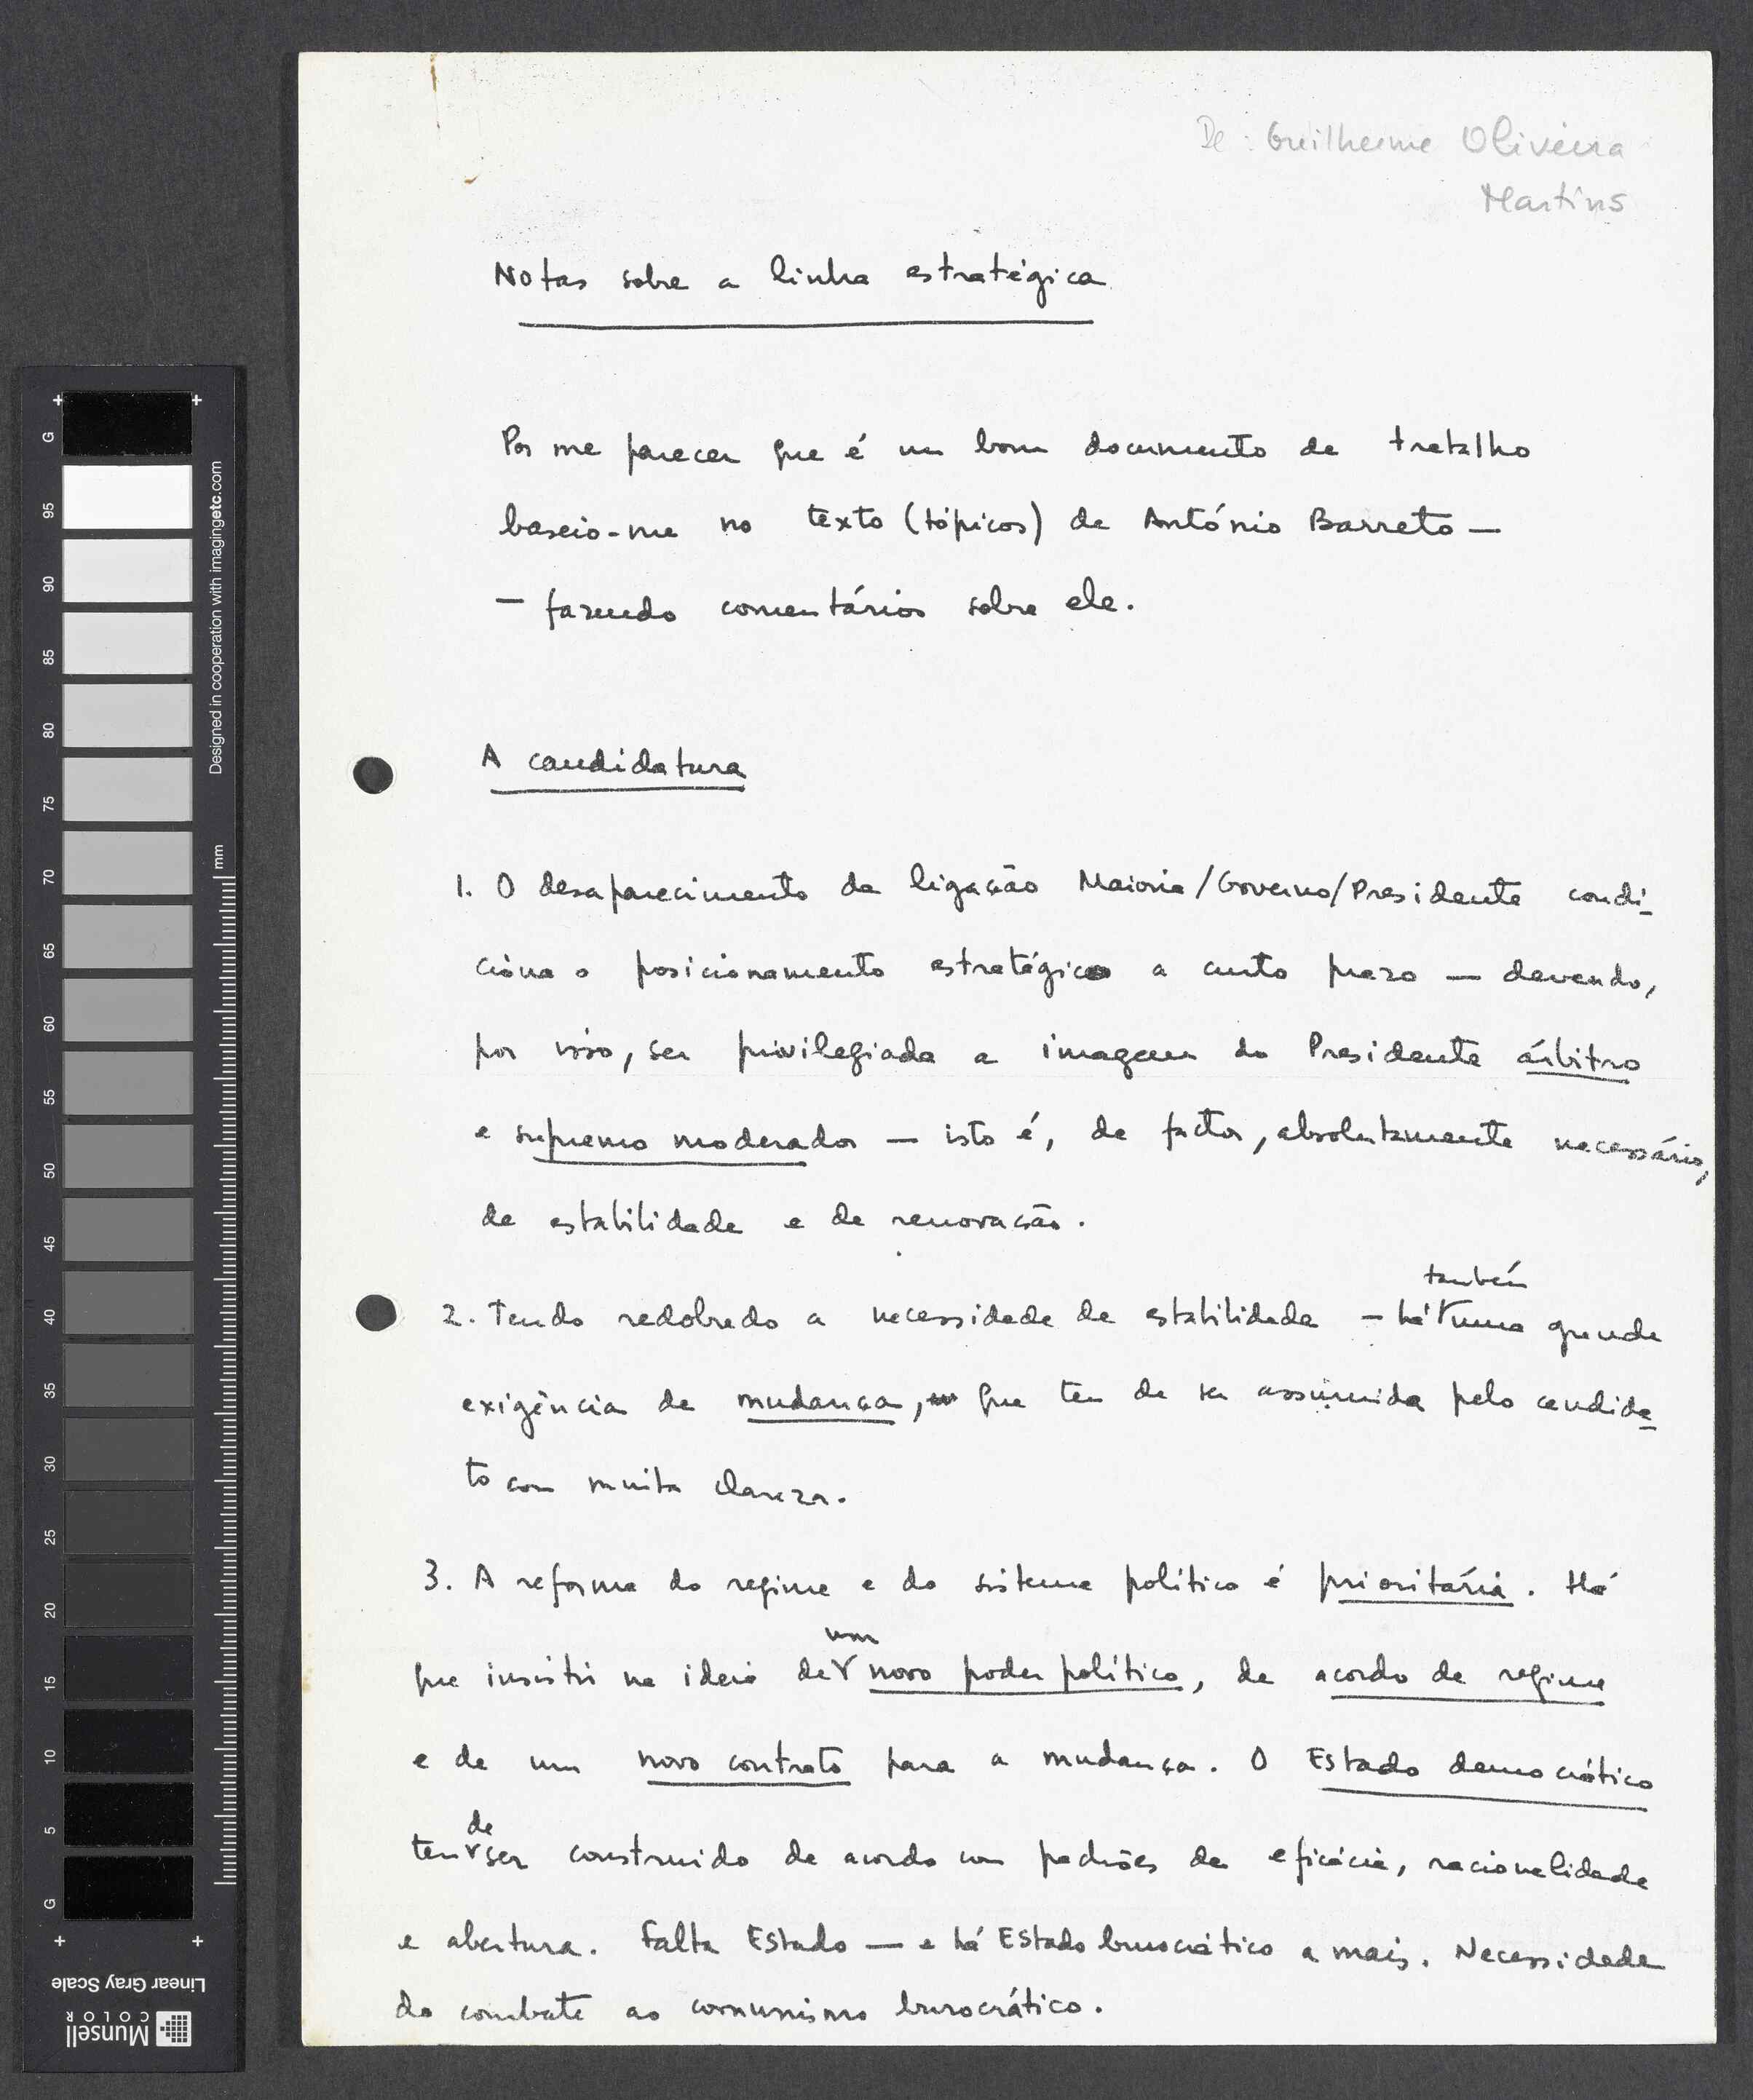 De : Guilherme Oliveira
Martins
Notas sobre a linha estratégica
Por me parecer que é um bom documento de trabalho
baseio-me no texto (tópicos) de António Barreto —
— fazendo comentários sobre ele.
A candidatura
1. O desaparecimento da ligação Maioria/Governo/Presidente condi-
ciona o posicionamento estratégico a curto prazo — devendo,
por isso, ser privilegiada a imagem do Presidente árbitro
e supremo moderador — isto é, de factor, absolutamente necessário,
de estabilidade e de renovação.
também
2. Tendo redobrado a necessidade de estabilidade — há uma grande
exigência de mudança, que tem de ser assumida pelo candida-
to com muita clareza.
3. A reforma do regime e do sistema político é prioritária. Há
um
que insistir na ideia de novo poder político, de acordo de regime
e de um novo contrato para a mudança. O Estado democrático
de
tem ser construido de acordo com padrões de eficácia, racionalidade
e abertura. Falta Estado — e há Estado burocrático a mais. Necessidade
do combate ao comunismo burocrático.
G
95
90
85
80
75
70
65
60
55
50
45
40
35
30
25
20
15
10
5
G
mm
Designed in cooperation with imagingetc.com
Linear Gray Scale
Munsell
COLOR